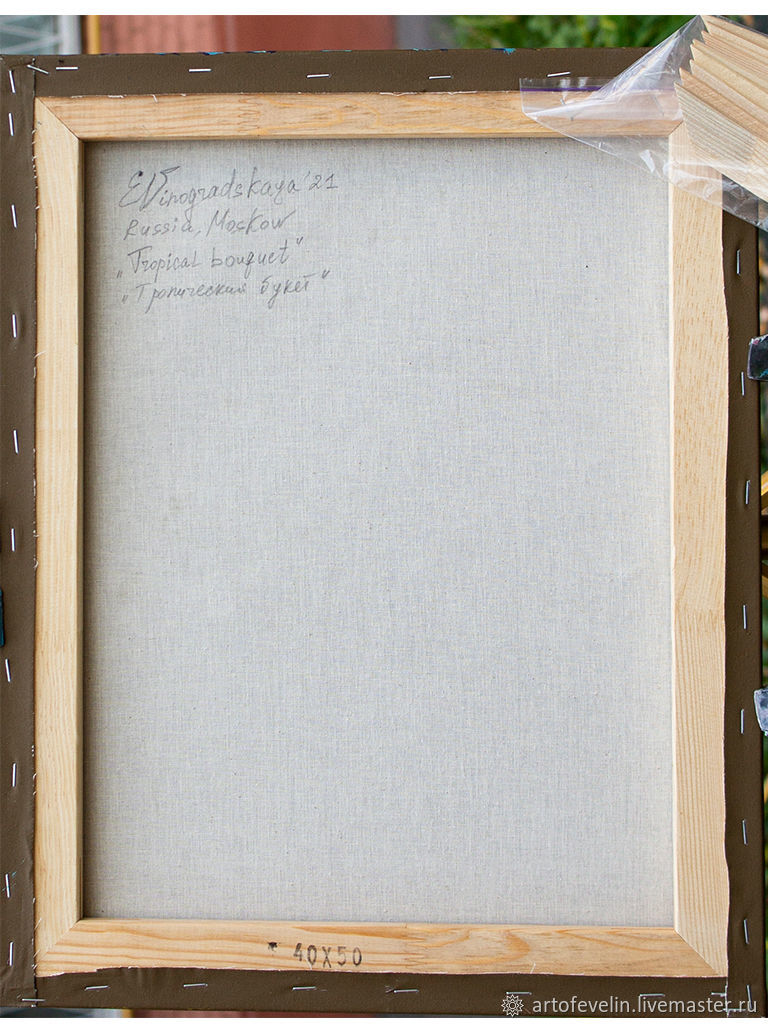 EVinogradskaya '21
Russia, Moskow
„Tropical bouquet"
„Тропический букет"
40X50
artofevelin.livemaster.ru